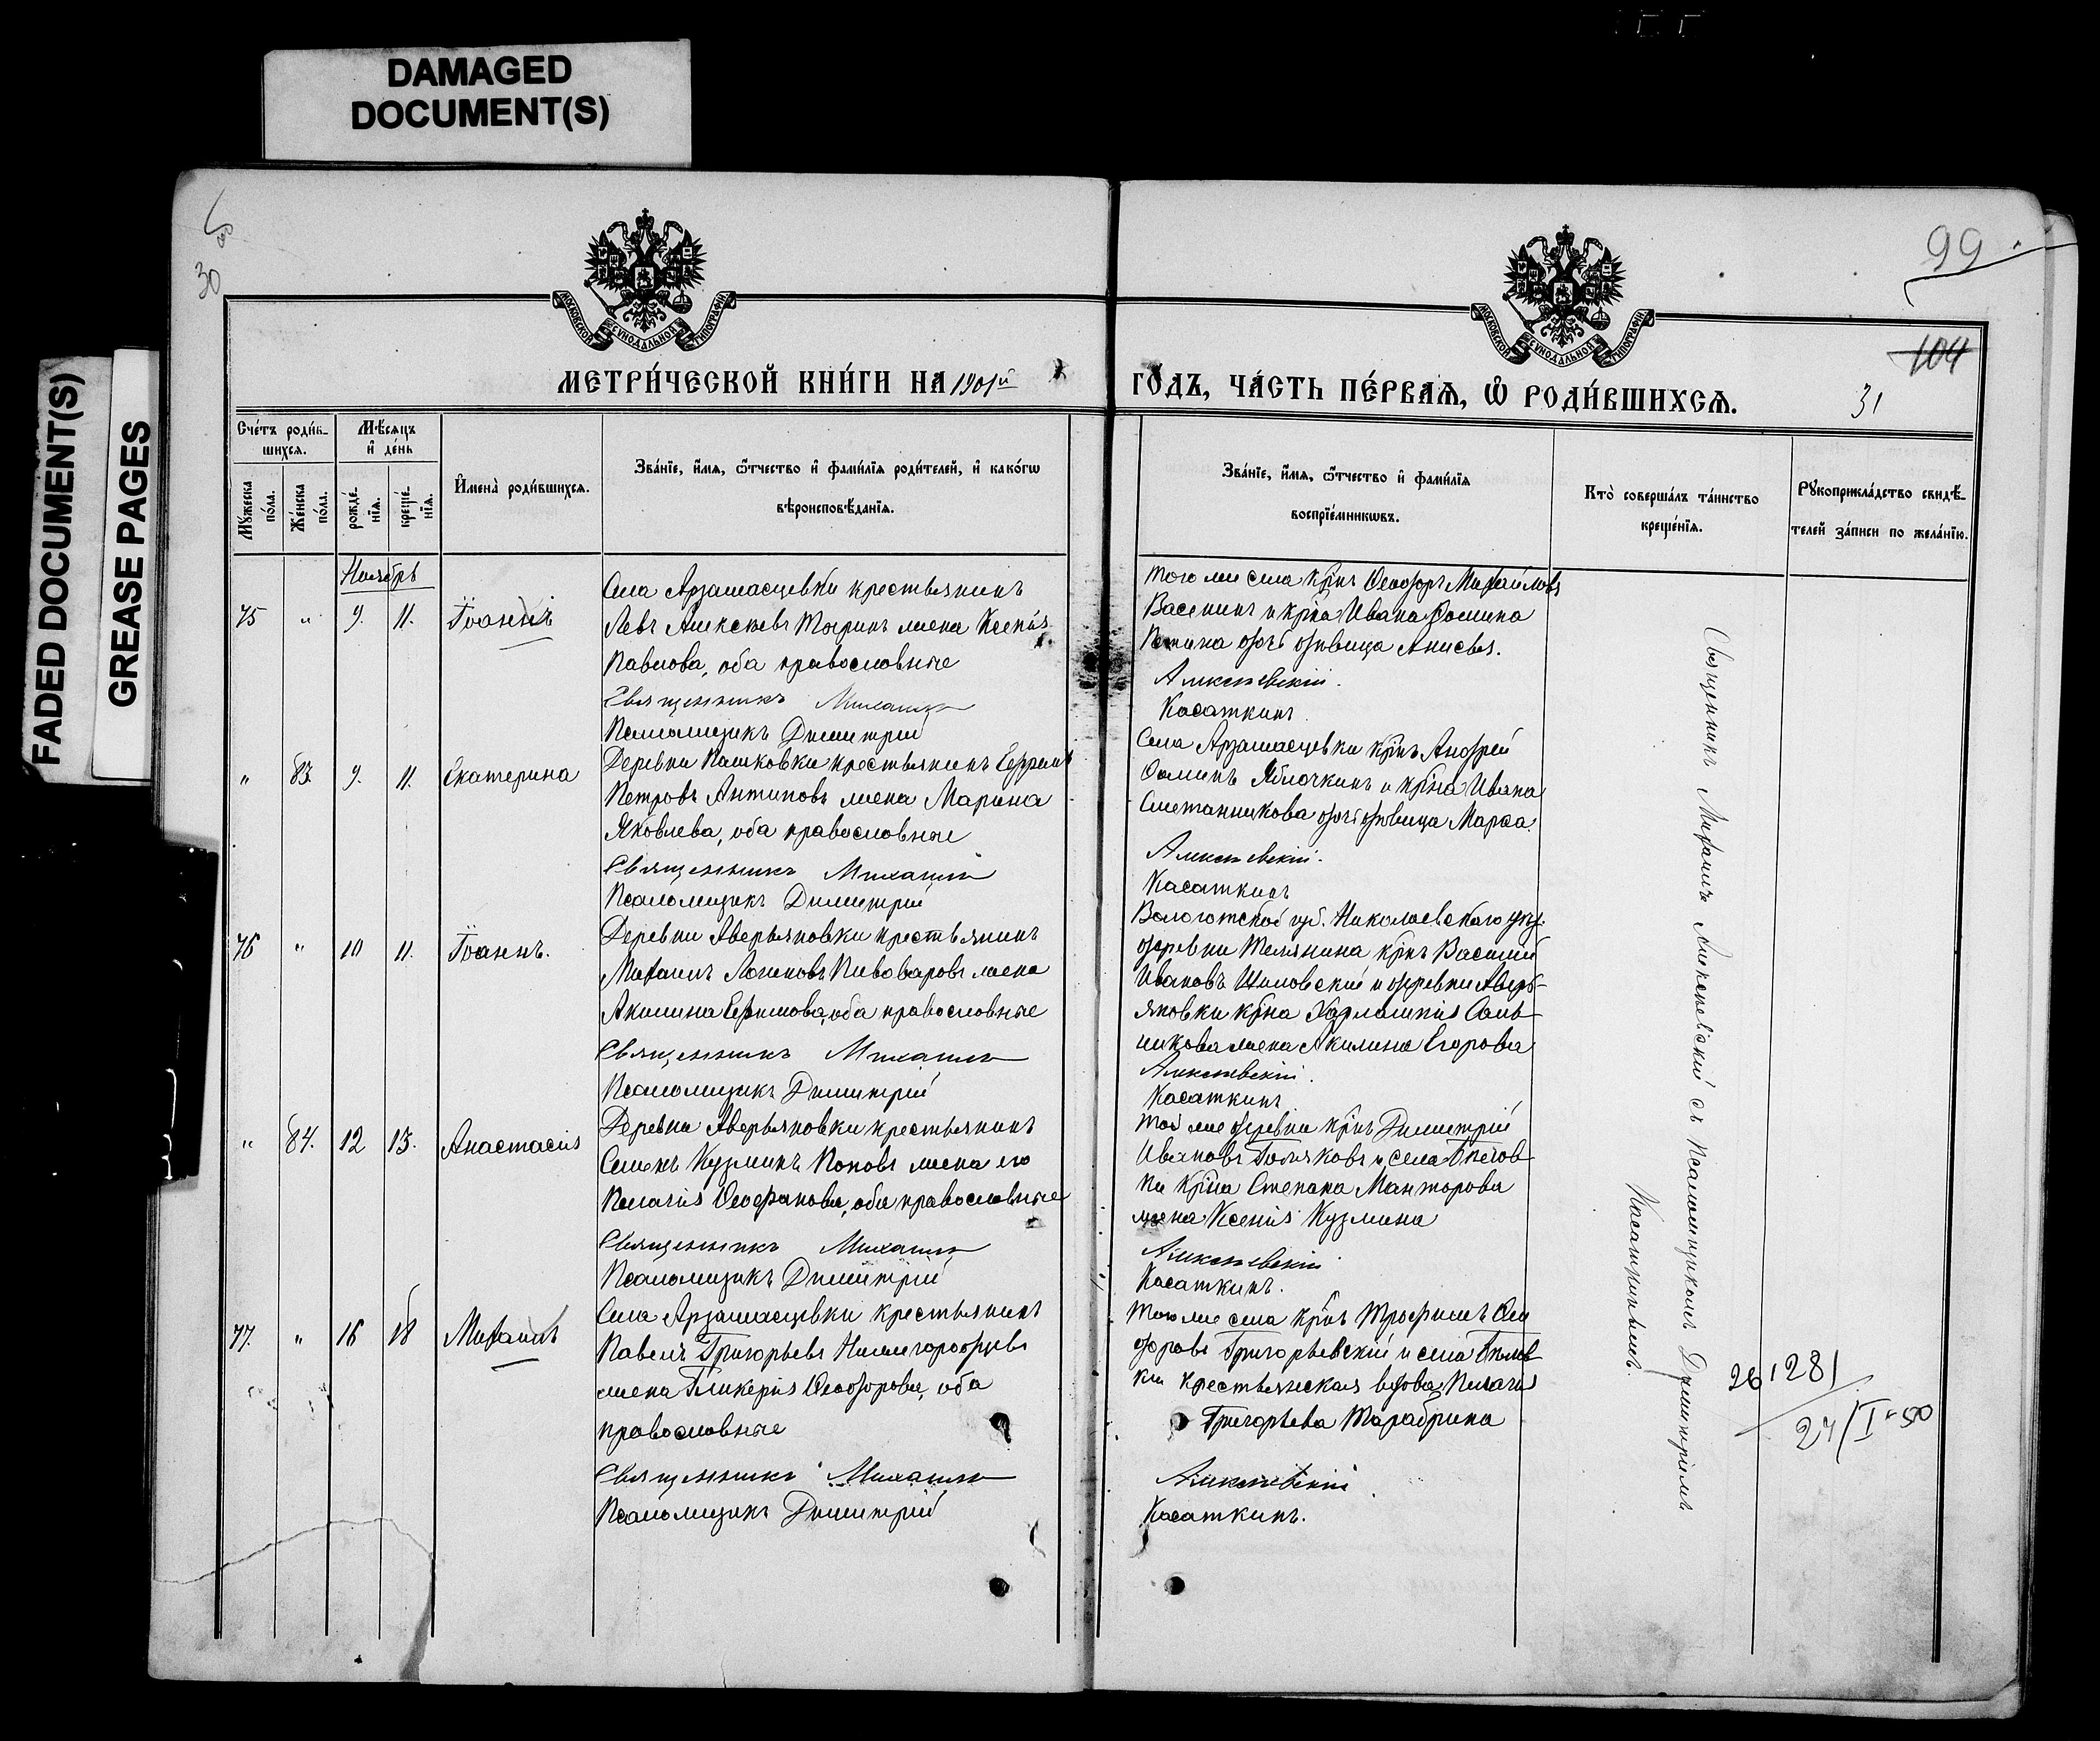 DAMAGED
DOCUMENT(S)
FADED DOCUMENT(S)
GREASE PAGES
30
99
104
31
МОСКОВСКОЙ СѴНОДАЛЬНОЙ ТИПОГРАФІИ
МОСКОВСКОЙ СѴНОДАЛЬНОЙ ТИПОГРАФІИ
МЕТРИ́ЧЕСКОЙ КНИ́ГИ НА 1901й
ГО́ДЪ, ЧА́СТЬ ПЕ́РВАѦ, Ѽ РОДИ́ВШИХСѦ.
Сче́тъ роди́в-
шихсѧ.
Мѣ́сѧцъ
и҆ де́нь
Мꙋ́жеска
по́ла.
Же́нска
по́ла.
рожде́-
нїѧ.
креще́-
нїѧ.
И҆мена̀ роди́вшихсѧ.
Зва́нїе, и҆́мѧ, ѻ҆́тчество и҆ фами́лїѧ роди́телей, и҆ како́гѡ
вѣроисповѣ́данїѧ.
Зва́нїе, и҆́мѧ, ѻ҆́тчество и҆ фами́лїѧ
воспрїе́мникѡвъ.
Кто̀ соверша́лъ та́инство
креще́нїѧ.
Рꙋкоприкла́дство свидѣ́-
телей за́писи по жела́нїю.
Ноябрь
75 " 9. 11. Іоаннъ
Села Арзамасцевки крестьянинъ
Левъ Алексѣевъ жена Ксенія
Павлова, оба православные
Священникъ Михаилъ
Псаломщикъ Димитрій
Того же села кр҃нъ Ѳеодоръ Михайловъ
Васенинъ и кр҃на Ивана Фомина
дочь дѣвица Анисья.
Алексѣевскій.
Касаткинъ.
" 83. 9. 11. Екатерина
Деревни Пашковки крестьянинъ
Петровъ Антиповъ жена Марина
Яковлева, оба православные
Священникъ Михаилъ
Псаломщикъ Димитрій
Села Арзамасцевки кр҃нъ Андрей
Ѳоминъ Яблочкинъ и кр҃на Ивана
Сметанникова дочь дѣвица Марѳа.
Алексѣевскій.
Касаткинъ
76 " 10 11. Іоаннъ.
Деревни Аверьяновки крестьянинъ
Михаилъ Логиновъ Пивоваровъ жена
Акилина Ефимова, оба православные
Священникъ Михаилъ
Псаломщикъ Димитрій
Вологотской губ. Николаевского уѣз.
деревни кр҃нъ Василій
Ивановъ Шиловскій и деревни Аверь-
яновки кр҃на Харлампія
жена Акилина Егорова
Алексѣевскій.
Касаткинъ
" 84. 12 13. Анастасія
Деревни Аверьяновки крестьянинъ
Семенъ Кузминъ Поповъ жена его
Пелагія Ѳеофанова, оба православные
Священникъ Михаилъ
Псаломщикъ Димитрій
Той же деревни кр҃нъ Димитрій
Ивановъ и села
ки кр҃на Степана Манторова
жена Ксенія Кузмина
Алексѣевскій
Касаткинъ.
77. " 16 18 Михаилъ
Села Арзамасцевки крестьянинъ
Павелъ Григорьевъ Нижегородцевъ
жена Гликерія Ѳеодорова, оба
православные
Священникъ Михаилъ
Псаломщикъ Димитрій
Того же села кр҃нъ Трофимъ
доровъ Григорьевскій и села
ки крестьянская вдова Пелагія
Григорьева Тарабрина
Алексѣевскій
Касаткинъ.
Священникъ Михаилъ Алексѣевскій съ Псаломщикомъ Димитріемъ
Касаткинымъ.
281
24/I-50